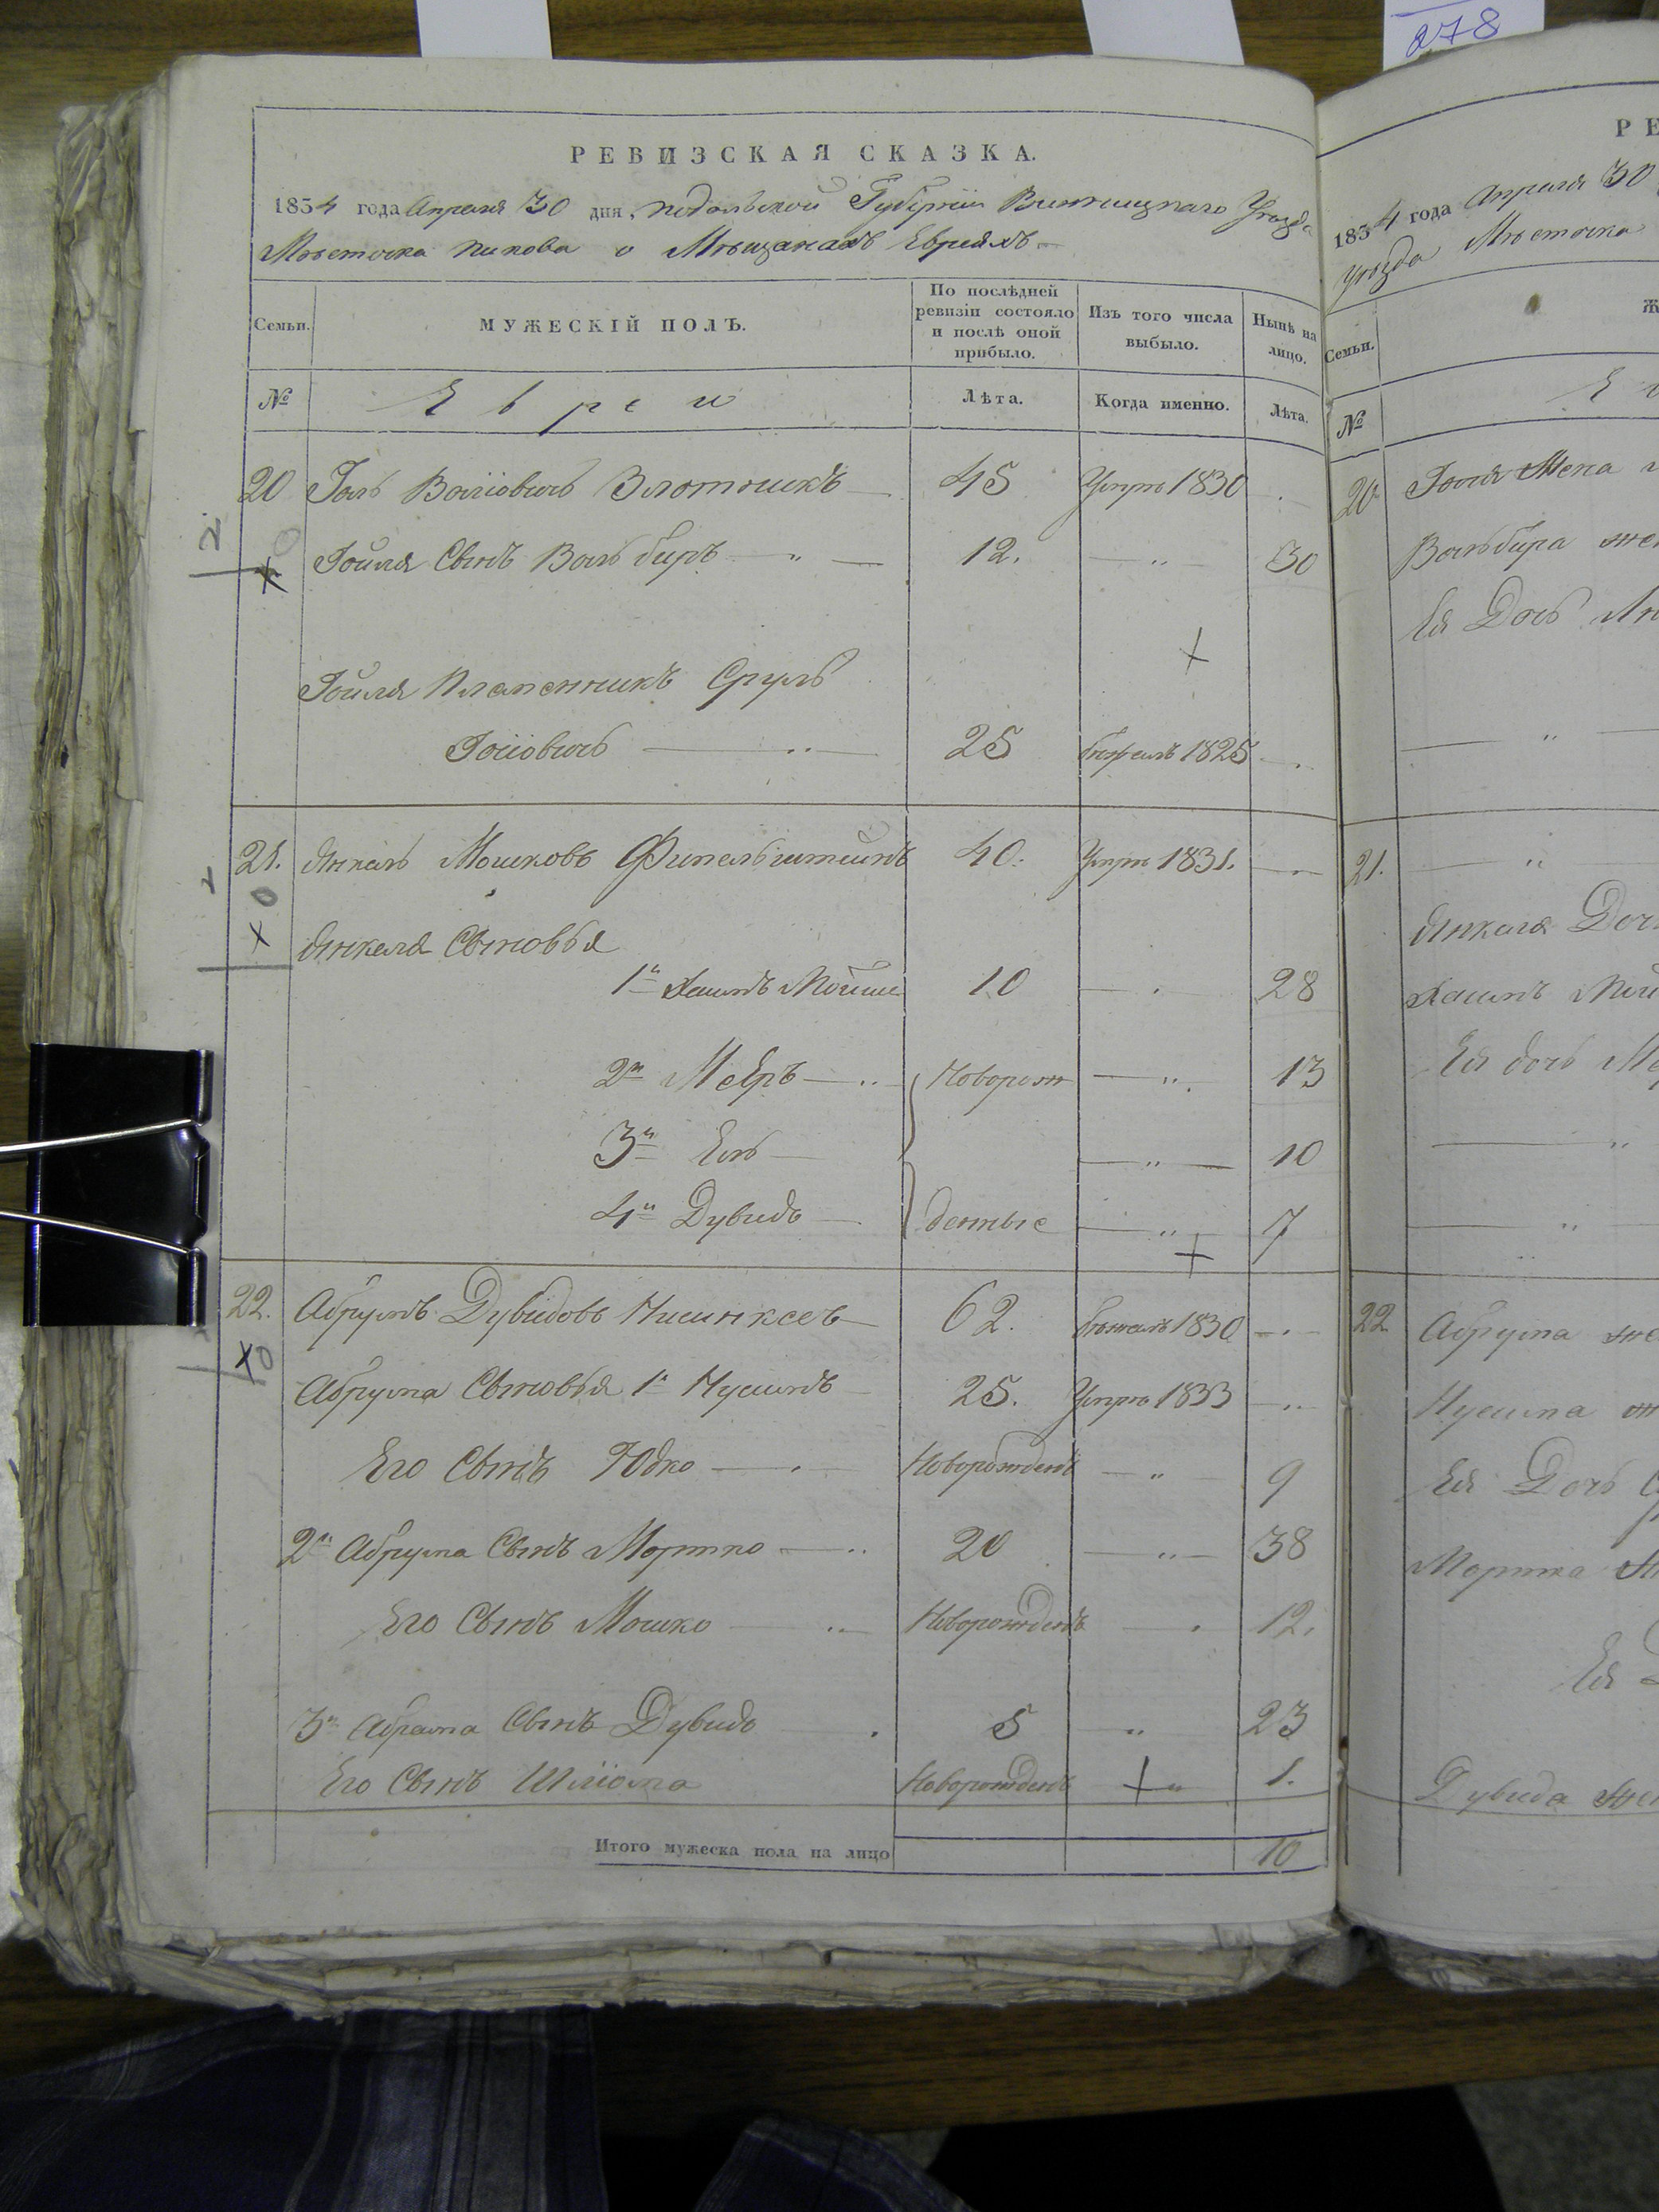 278
РЕВИЗСКАЯ СКАЗКА.
1834 года Апреля 30 дня, Подольской Губернiи Винницкаго Уезда
Мѣсточка Пикова о Мѣщанахъ Евреяхъ
Семьи. МУЖЕСКІЙ ПОЛЪ. По послѣдней ревизіи состояло и послѣ оной прибыло. Изъ того числа выбыло. Нынѣ на лицо.
№ Евреи Лѣта. Когда именно. Лѣта.
20 Волiовичь Злотникъ 45 Умре 1830
Iойля Сынъ Вольбиръ 12. 30
Iойля Племенникъ Сруль
Iоiовичь 25 1825
21. Янкель Мошковъ Финельштейнъ 40. Умре 1831.
Янкеля Сыновья
1й Хаимъ Мойше 10 28
2й Мееръ Новорож 13
3й Ель 10
4й Дувидъ денные 7
22. Абрумъ Дувидовъ 62. бежалъ 1830
Абрума Сыновья 1й Нусинъ 25. Умре 1833
Его Сынъ Юдко Новорожденъ 9
2й Абрума Сынъ Мортко 20 38
Его Сынъ Мошко Новорожденъ 12.
3й Абрама Сынъ Дувидъ 5 23
Его Сынъ Шлiома Новорожденъ 1.
Итого мужеска пола на лицо 10
РЕ
1834 года Апреля 30
Уезда Мѣсточка
Семьи. Ж
№
20 Жена
Вольбира
Ея Дочь
21.
Янкеля Доч
Хаимъ
Ея дочь
22 Абрума
Нусина
Ея Дочь
Мортка
Ея
Дувида